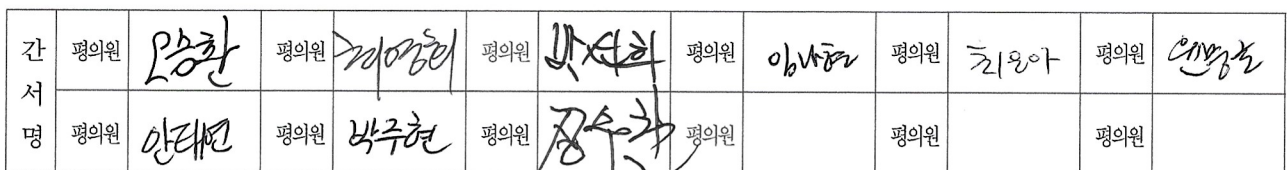 간 평의원 오승환 평의원 최영희 평의원 평의원 임나현 평의원 최윤아 평의원
서
명 평의원 안태연 평의원 박주현 평의원 평의원 평의원 평의원